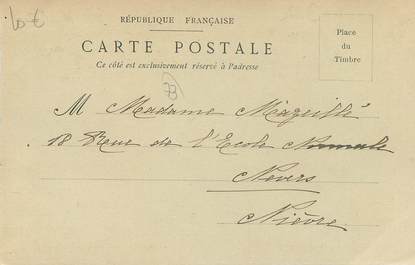 10 €
RÉPUBLIQUE FRANÇAISE
CARTE POSTALE
Ce côté est exclusivement réservé à l'adresse
Place
du
Timbre
M Madame
18 Rue de l'Ecole Normale
Nevers
Nièvre